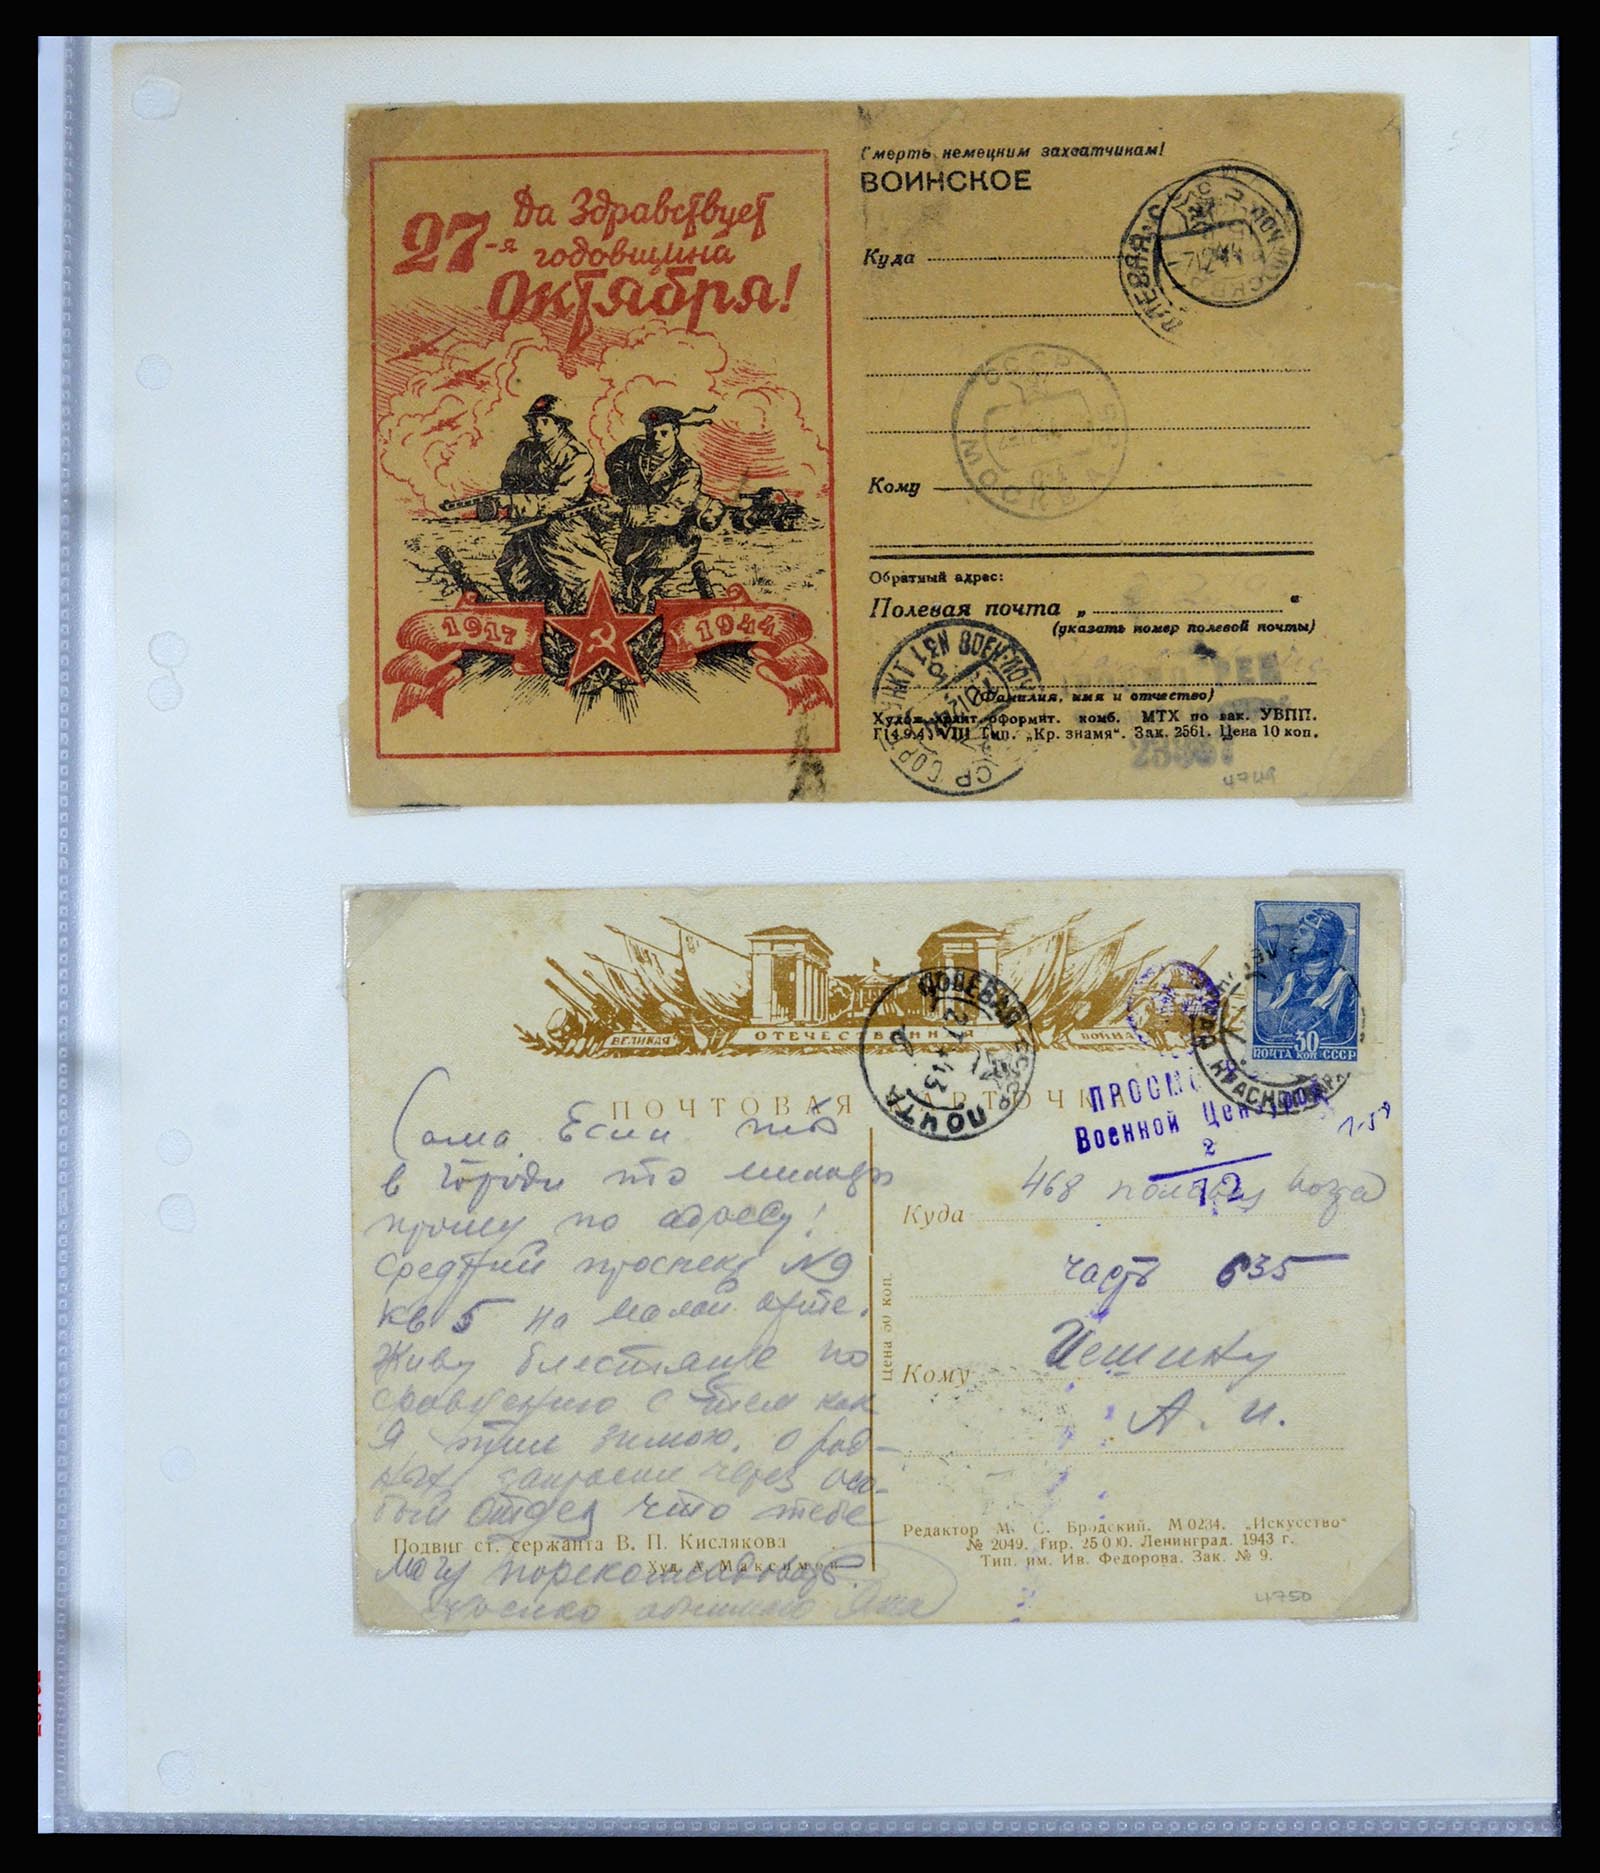 Да Здравствует
27-я годовщина
Октября!
1917 1944
Смерть немецким захватчикам!
ВОИНСКОЕ
Куда
Кому
Обратный адрес:
Полевая почта „ “
(указать номер полевой почты)
(Фамилия, имя и отчество)
Худож. оформит. комб. МТХ по зак. УВПП.
VIII Тип. „Кр. знамя“. Зак. 2561. Цена 10 коп.
4749
СССР
МОСКВА
7 12 44
ВЕЛИКАЯ ОТЕЧЕСТВЕННАЯ ВОЙНА
30
ПОЧТА КОП СССР
ПОЛЕВАЯ ПОЧТА
СССР
ПОЧТОВАЯ КАРТОЧКА
ПРОСМ
Военной Цензурой
2
12
Сама. Если
в городе то
прошу по адресу!
Средний проспект №9
кв 5 на
Живу блестяще по
сравнению с тем как
я жил зимою. О род-
ных запроси через осо-
бый отдел что тебе
могу порекомендовать.
Куда 468 полевая почта
часть 635
Кому
А. И.
Цена 50 коп.
Подвиг ст. сержанта В. П. Кислякова
Худ. А. Максимов
Редактор М. С. Бродский. М 0234. „Искусство“
№ 2049. Тир. 25 000. Ленинград. 1943 г.
Тип. им. Ив. Федорова. Зак. № 9.
4750